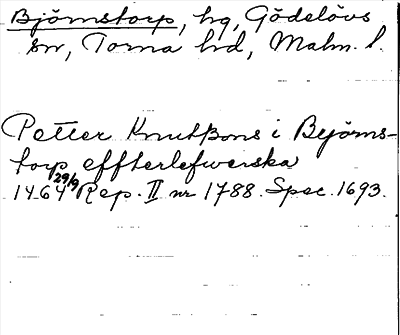 Björnstorp, hg, Gödelövs
sn, Torna hd, Malm. l.
Petter Knutßons i Bejörns-
torp effterlefwerska
1464 29/9 Rep. II nr 1788. Spec. 1693.